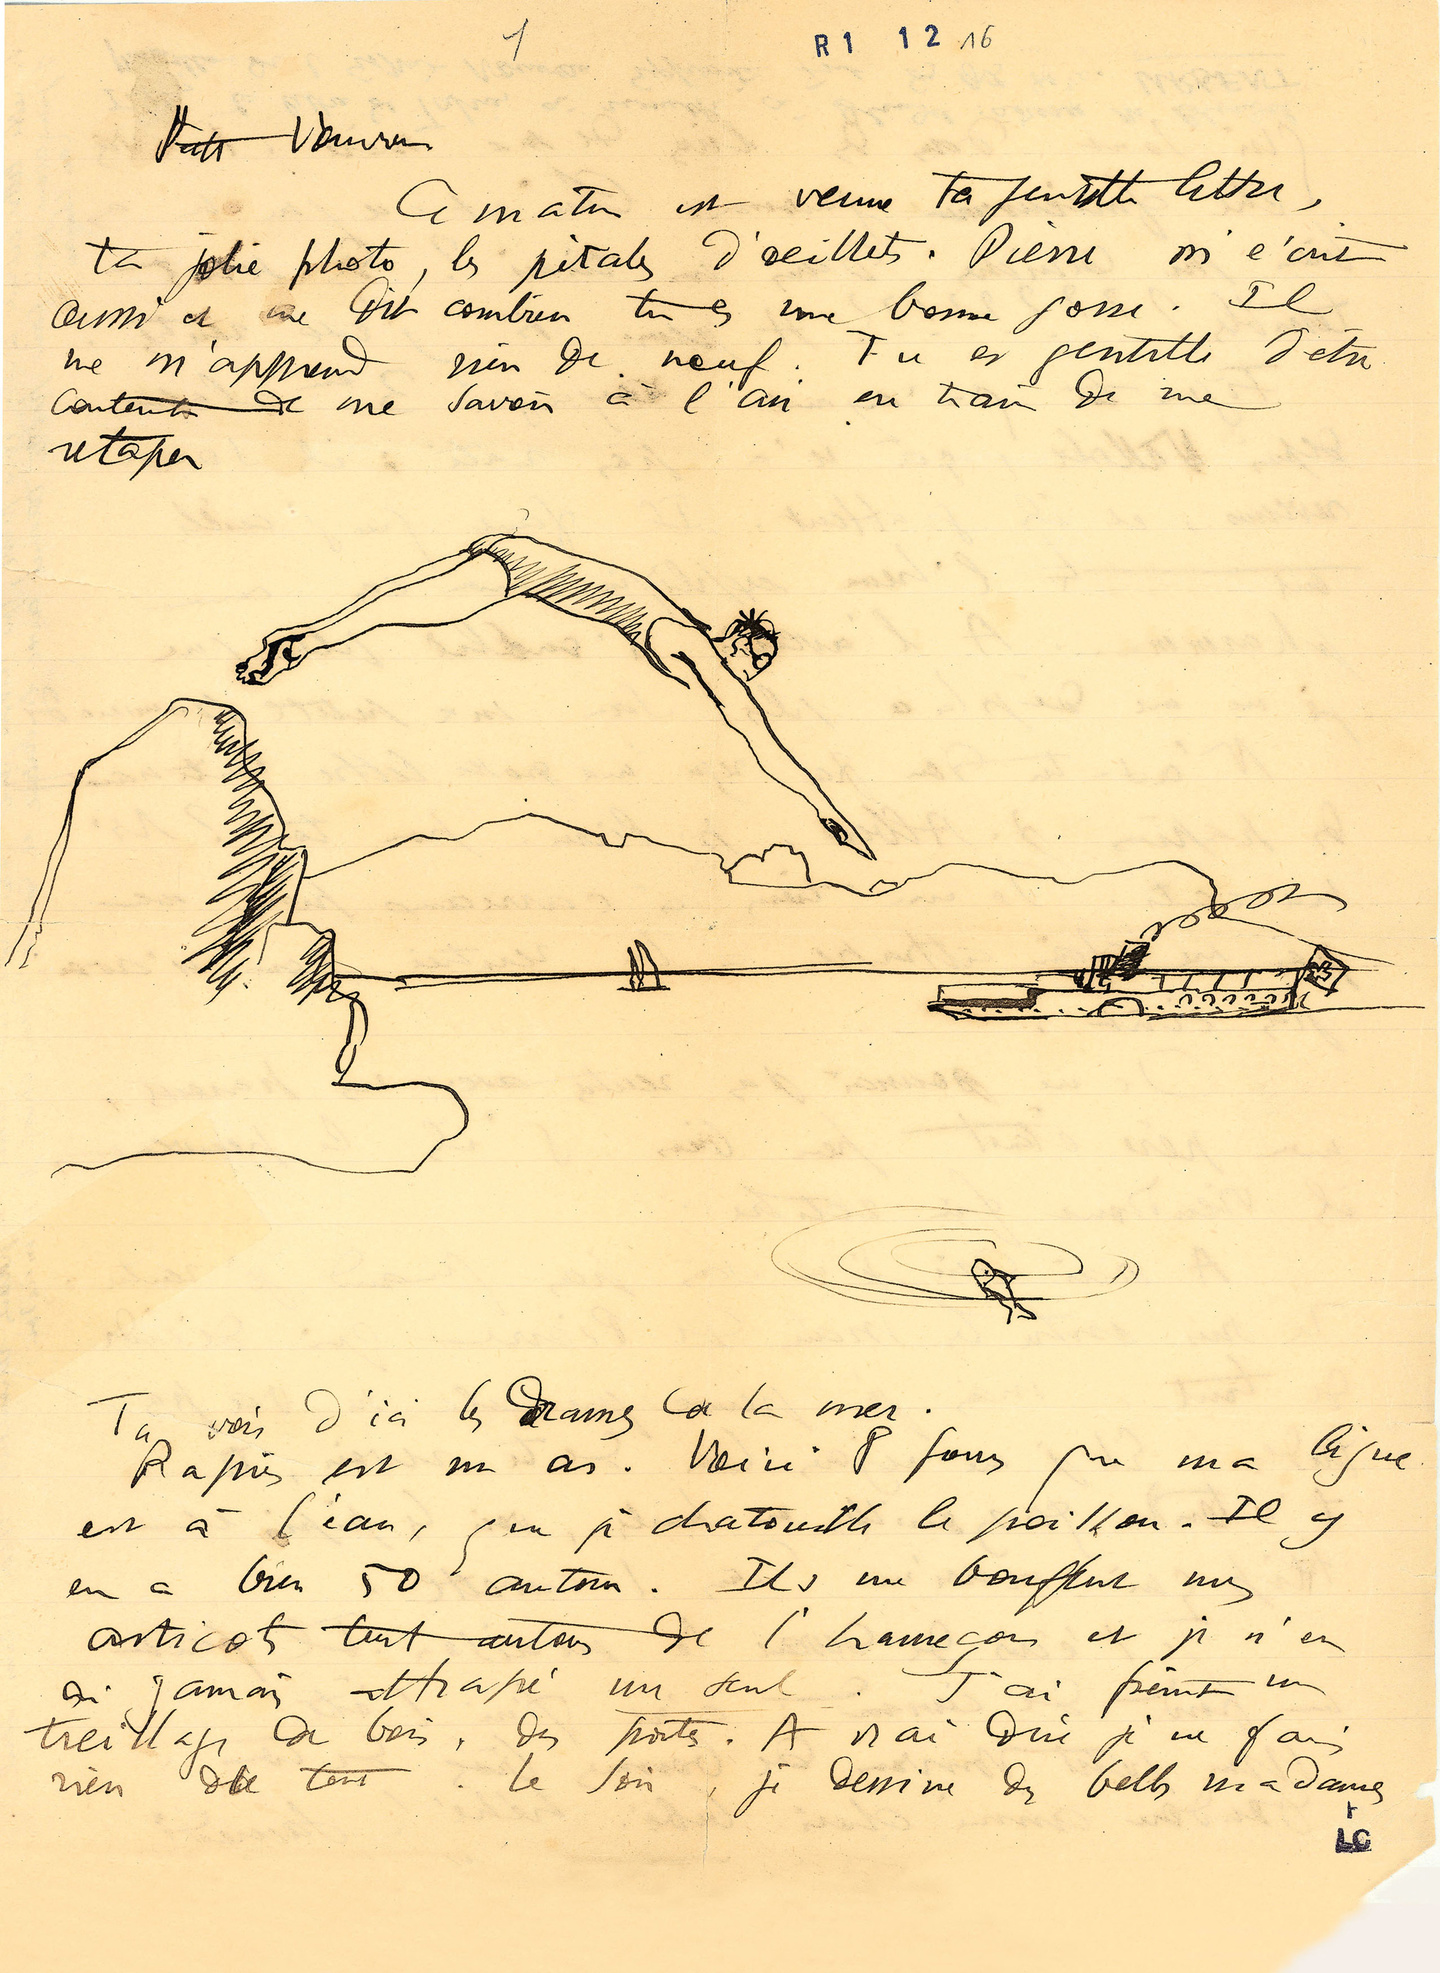 1
R1 12 16
Petit Vonvon
Ce matin est venue ta gentille lettre,
ta jolie photo, les pétales d'œillets. Pierre m'écrit
aussi et me dit combien tu es une bonne gosse. Il
ne m'apprend rien de neuf. Tu es gentille d'être
contente de me savoir à l'air en train de me
retaper
Tu vois d'ici les drames de la mer.
est un as. Voici 8 jours que ma ligne
est à l'eau, que je chatouille le poisson. Il y
en a bien 50 autour. Ils me bouffent mes
asticots tout autour de l'hameçon et je n'en
ai jamais attrapé un seul. J'ai peint un
treillage de bois, des portes. A vrai dire je ne fais
rien du tout. Le soir, je dessine des belles madames